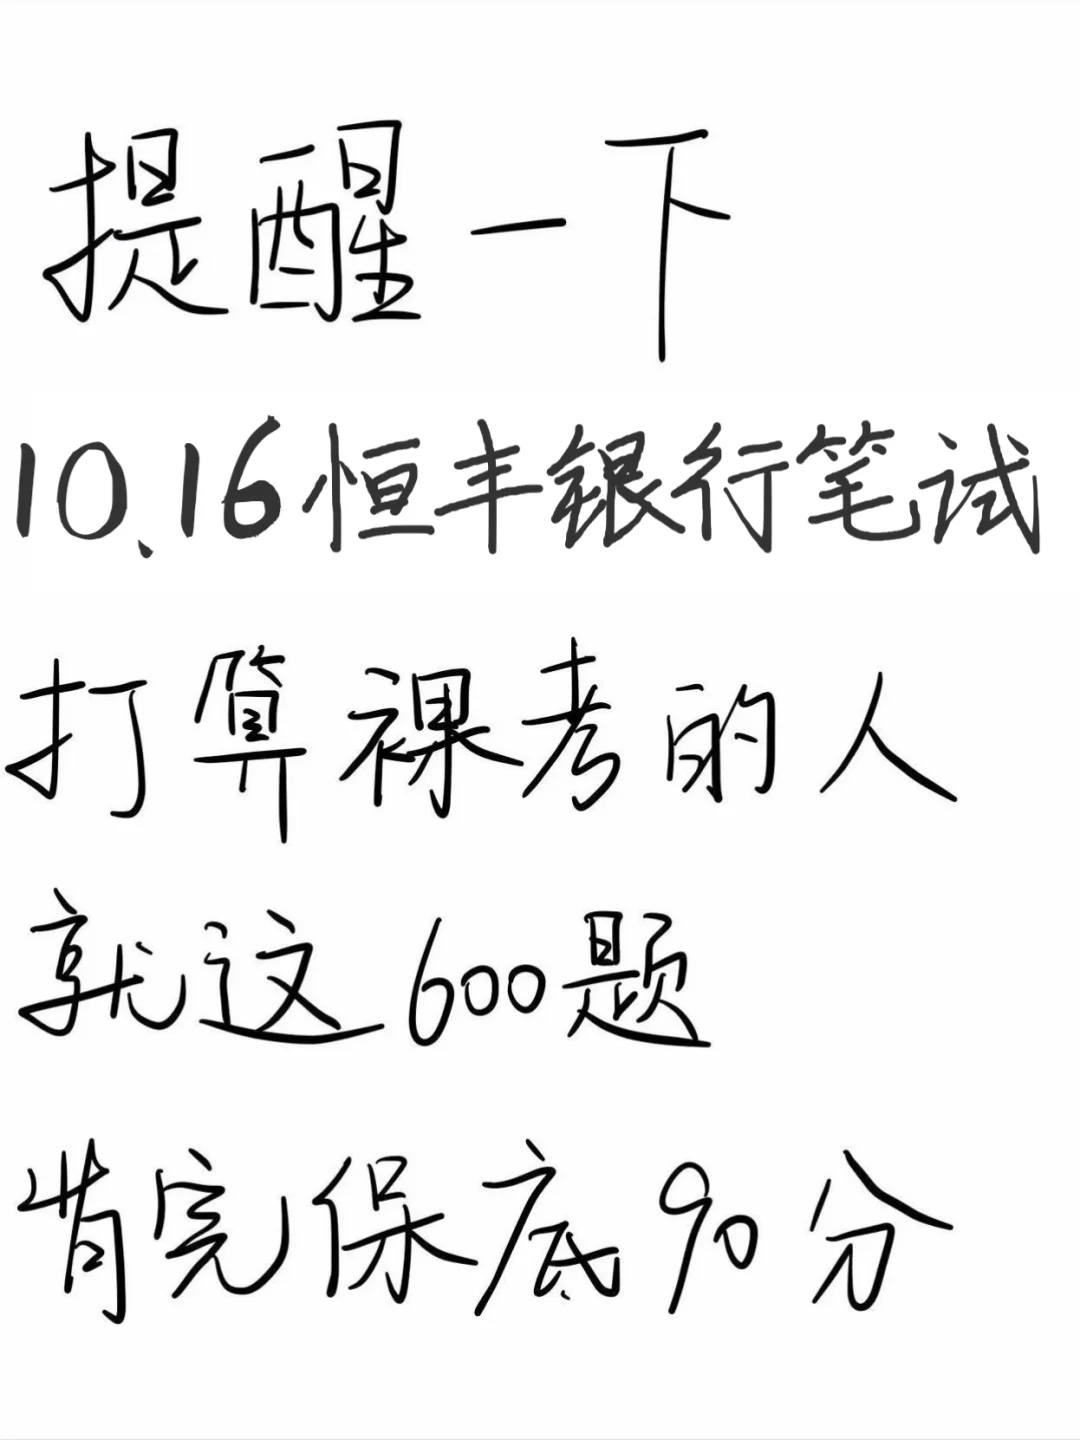 提醒一下
10.16恒丰银行笔试
打算裸考的人
就这600题
背完保底90分